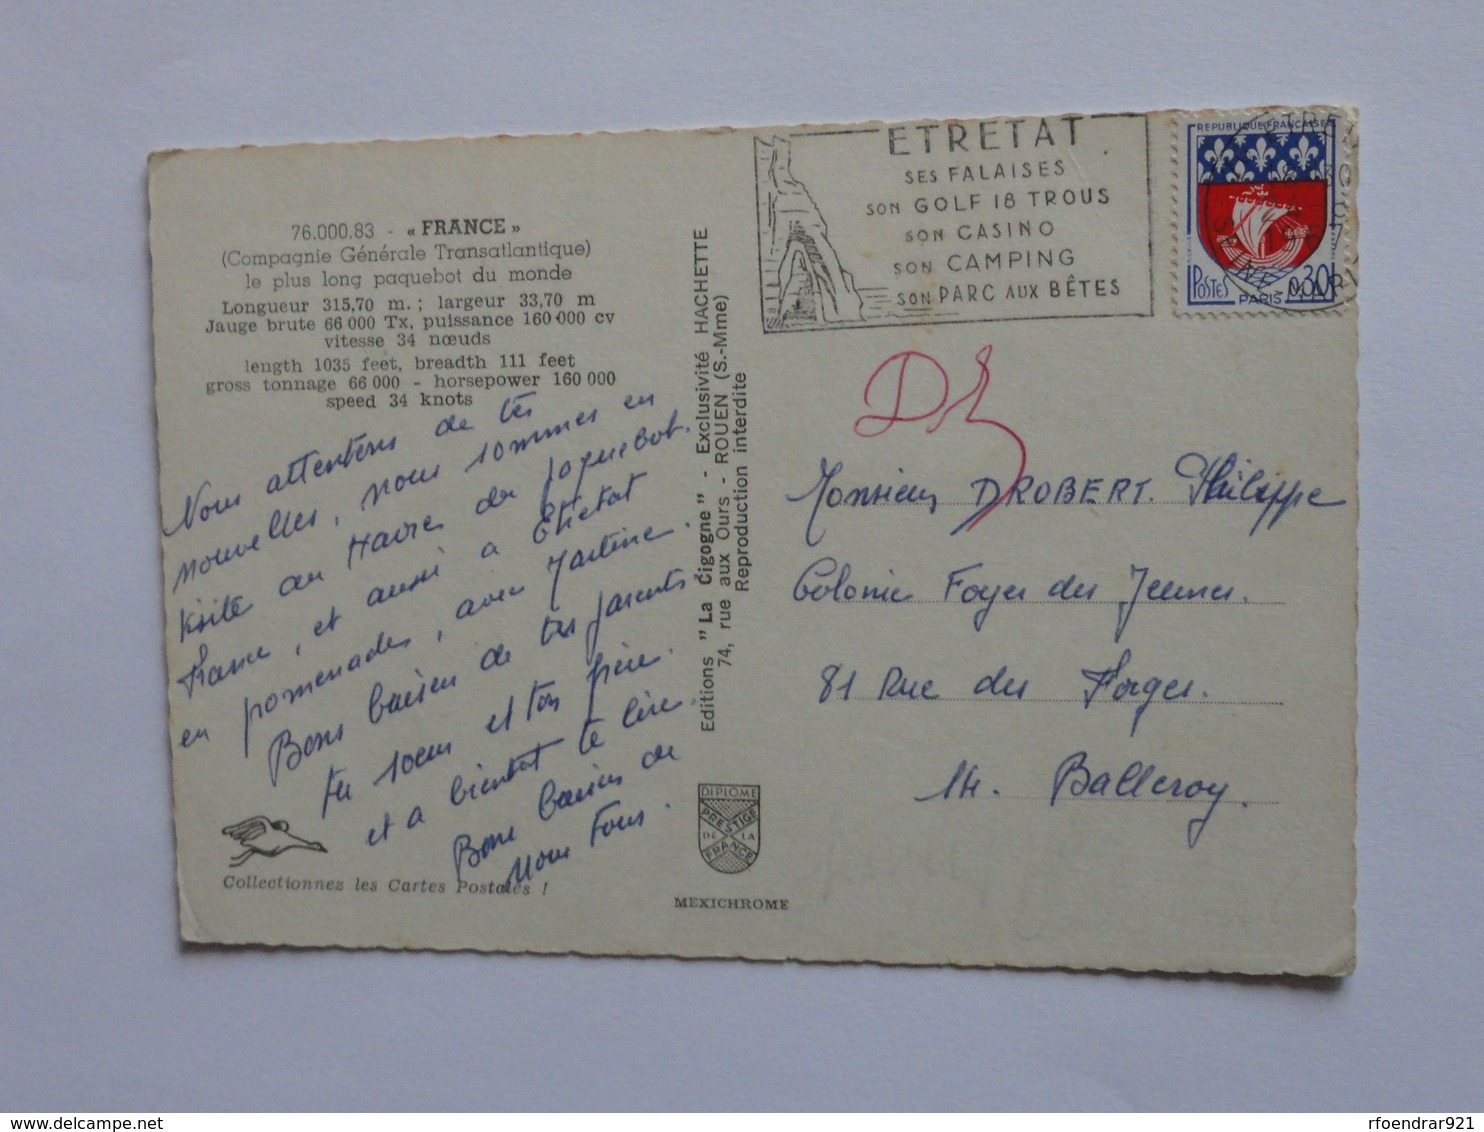 76.000.83 - « FRANCE »
(Compagnie Générale Transatlantique)
le plus long paquebot du monde
Longueur 315,70 m. ; largeur 33,70 m
Jauge brute 66 000 Tx, puissance 160 000 cv
vitesse 34 nœuds
length 1035 feet, breadth 111 feet
gross tonnage 66 000 - horsepower 160 000
speed 34 knots
Nous attentens de tes
nouvelles, nous sommes en
visite au Havre du paquebot.
France, et aussi a Etretat
en promenades, avec Martine.
Bons baisers de tes parents
ta soeur et ton frère.
et a bientot te lire
Bons baisers de
Nous Tous.
Collectionnez les Cartes Postales !
Editions "La Cigogne" - Exclusivité HACHETTE
74, rue aux Ours - ROUEN (S.-Mme)
Reproduction interdite
DIPLÔME
PRESTIGE
DE LA
FRANCE
MEXICHROME
ETRETAT
SES FALAISES
SON GOLF 18 TROUS
SON CASINO
SON CAMPING
SON PARC AUX BÊTES
REPUBLIQUE FRANÇAISE
POSTES
PARIS
0,30
Monsieur DROBERT. Philippe
Colonie Foyer des Jeunes.
81 Rue des Forges.
14. Balleroy.
rfoendrar921